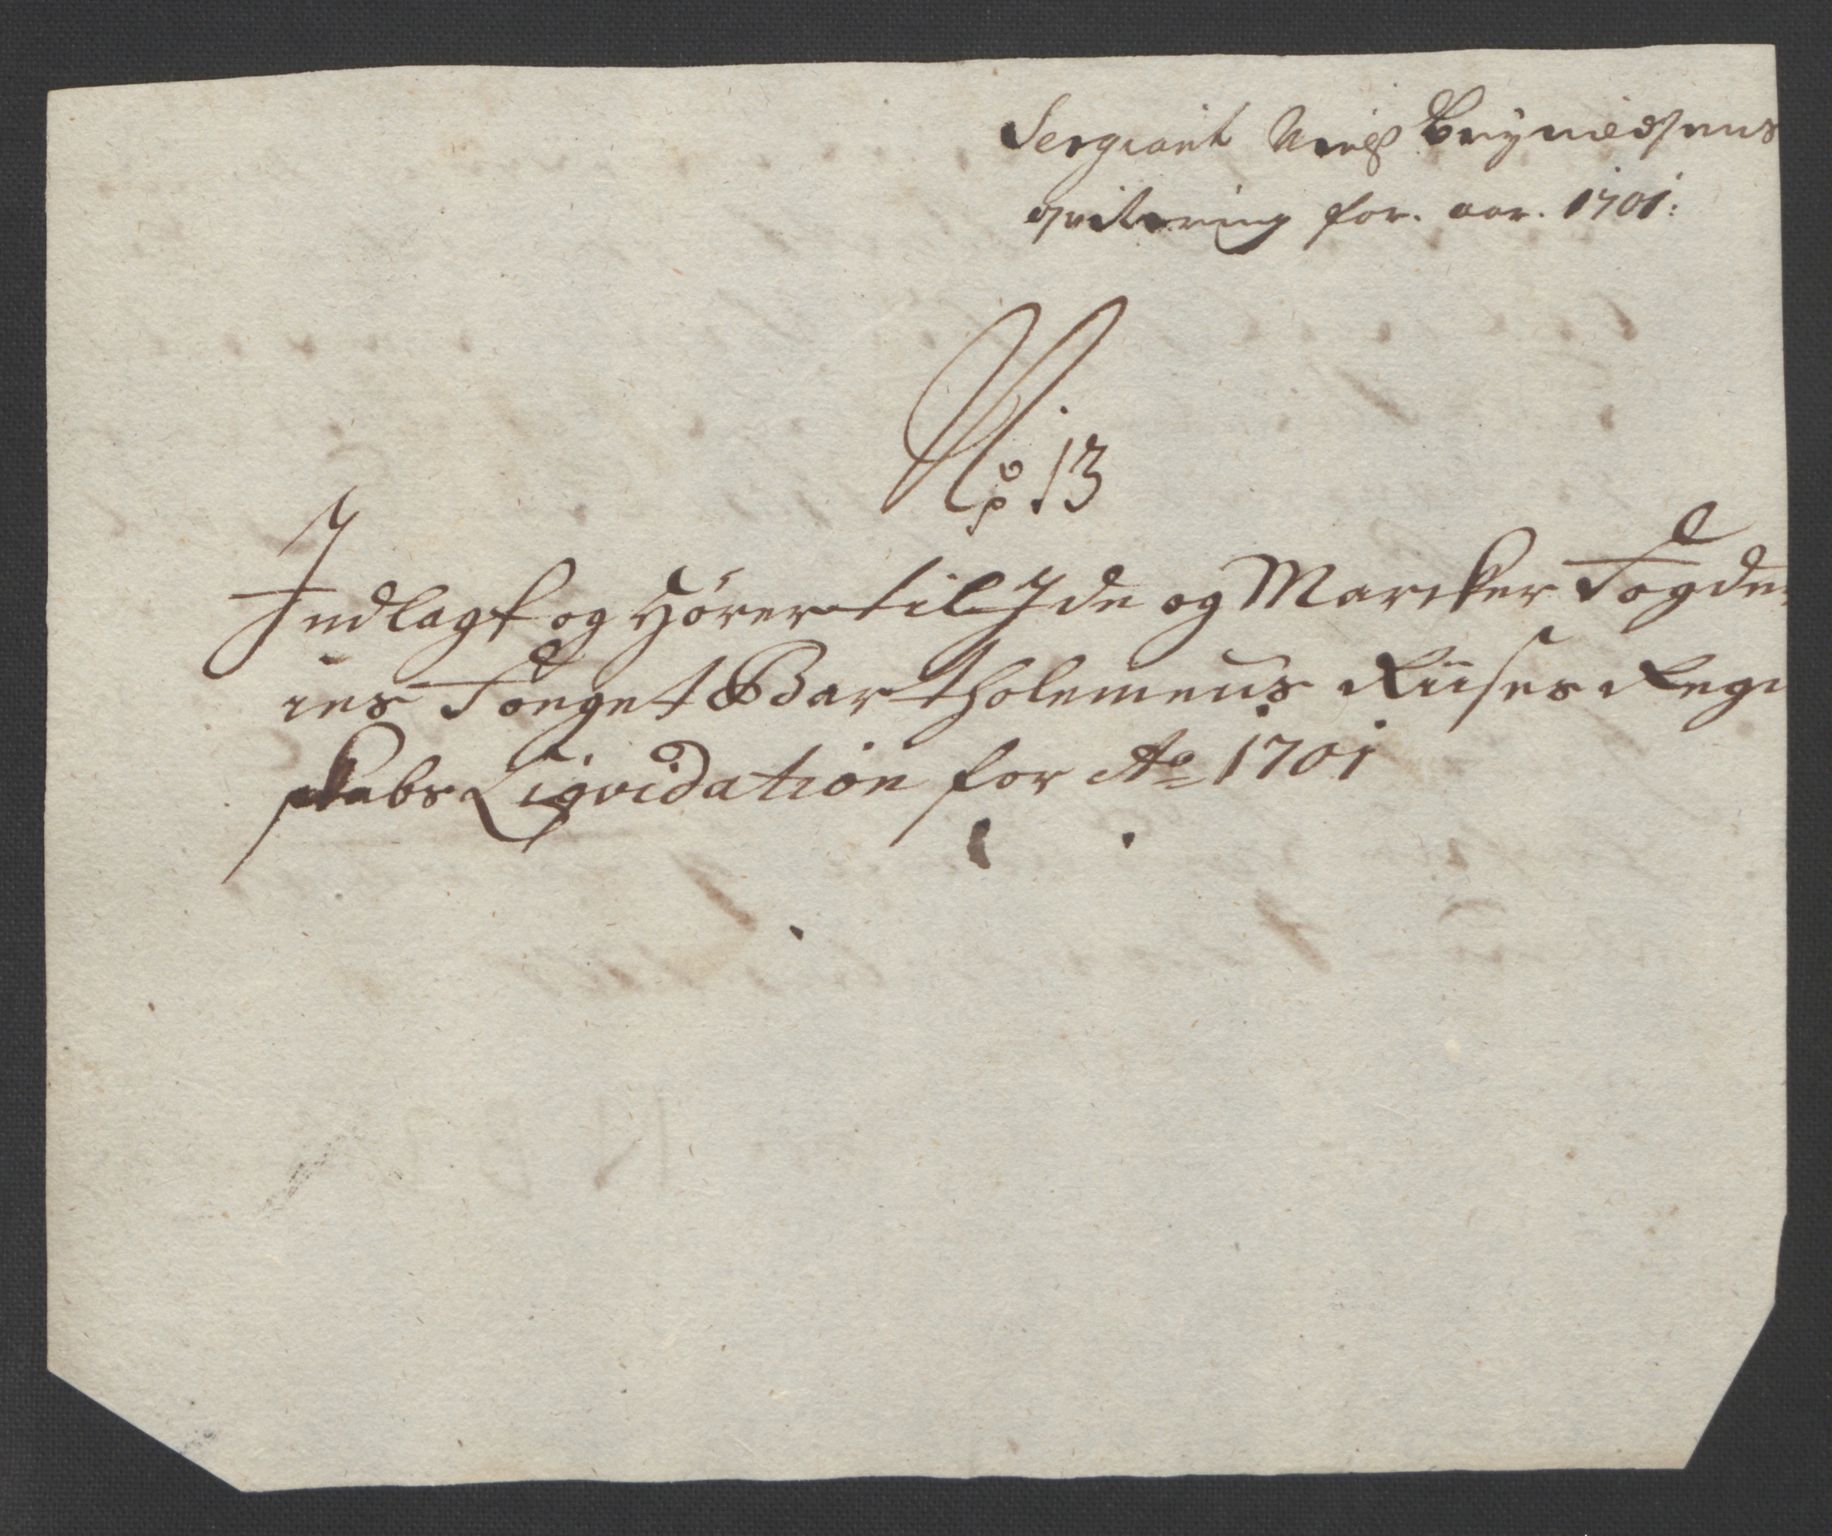 Sergiant Niels Brÿnildsens
qvitering for. aar. 1701:
No. 13
Indlagt og Hører til Ide og Marcker Fogde-
ries Foeget Bartholemeus Riises Regn
skabs Liqvidation for Ao 1701